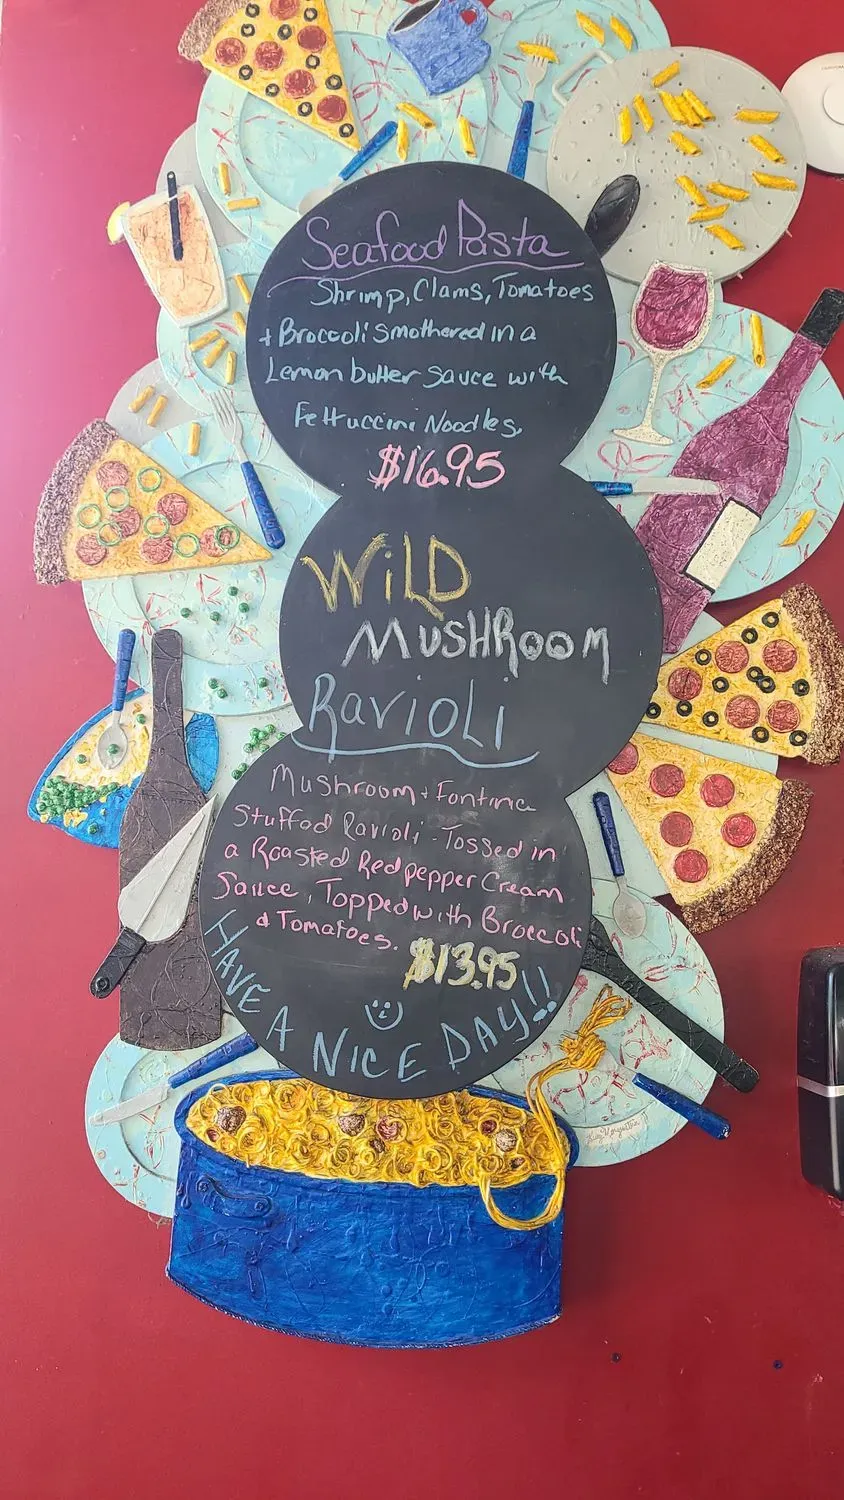 Seafood Pasta
Shrimp, Clams, Tomatoes
+ Broccoli smothered in a
Lemon butter sauce with
Fettuccini Noodles.
$16.95
WiLD
MUSHRooM
RavioLi
Mushroom + Fontina
Stuffed Ravioli - Tossed in
a Roasted Red pepper Cream
Sauce, Topped with Broccoli
& Tomatoes.
$13.95
HAVE A NICE DAY!!